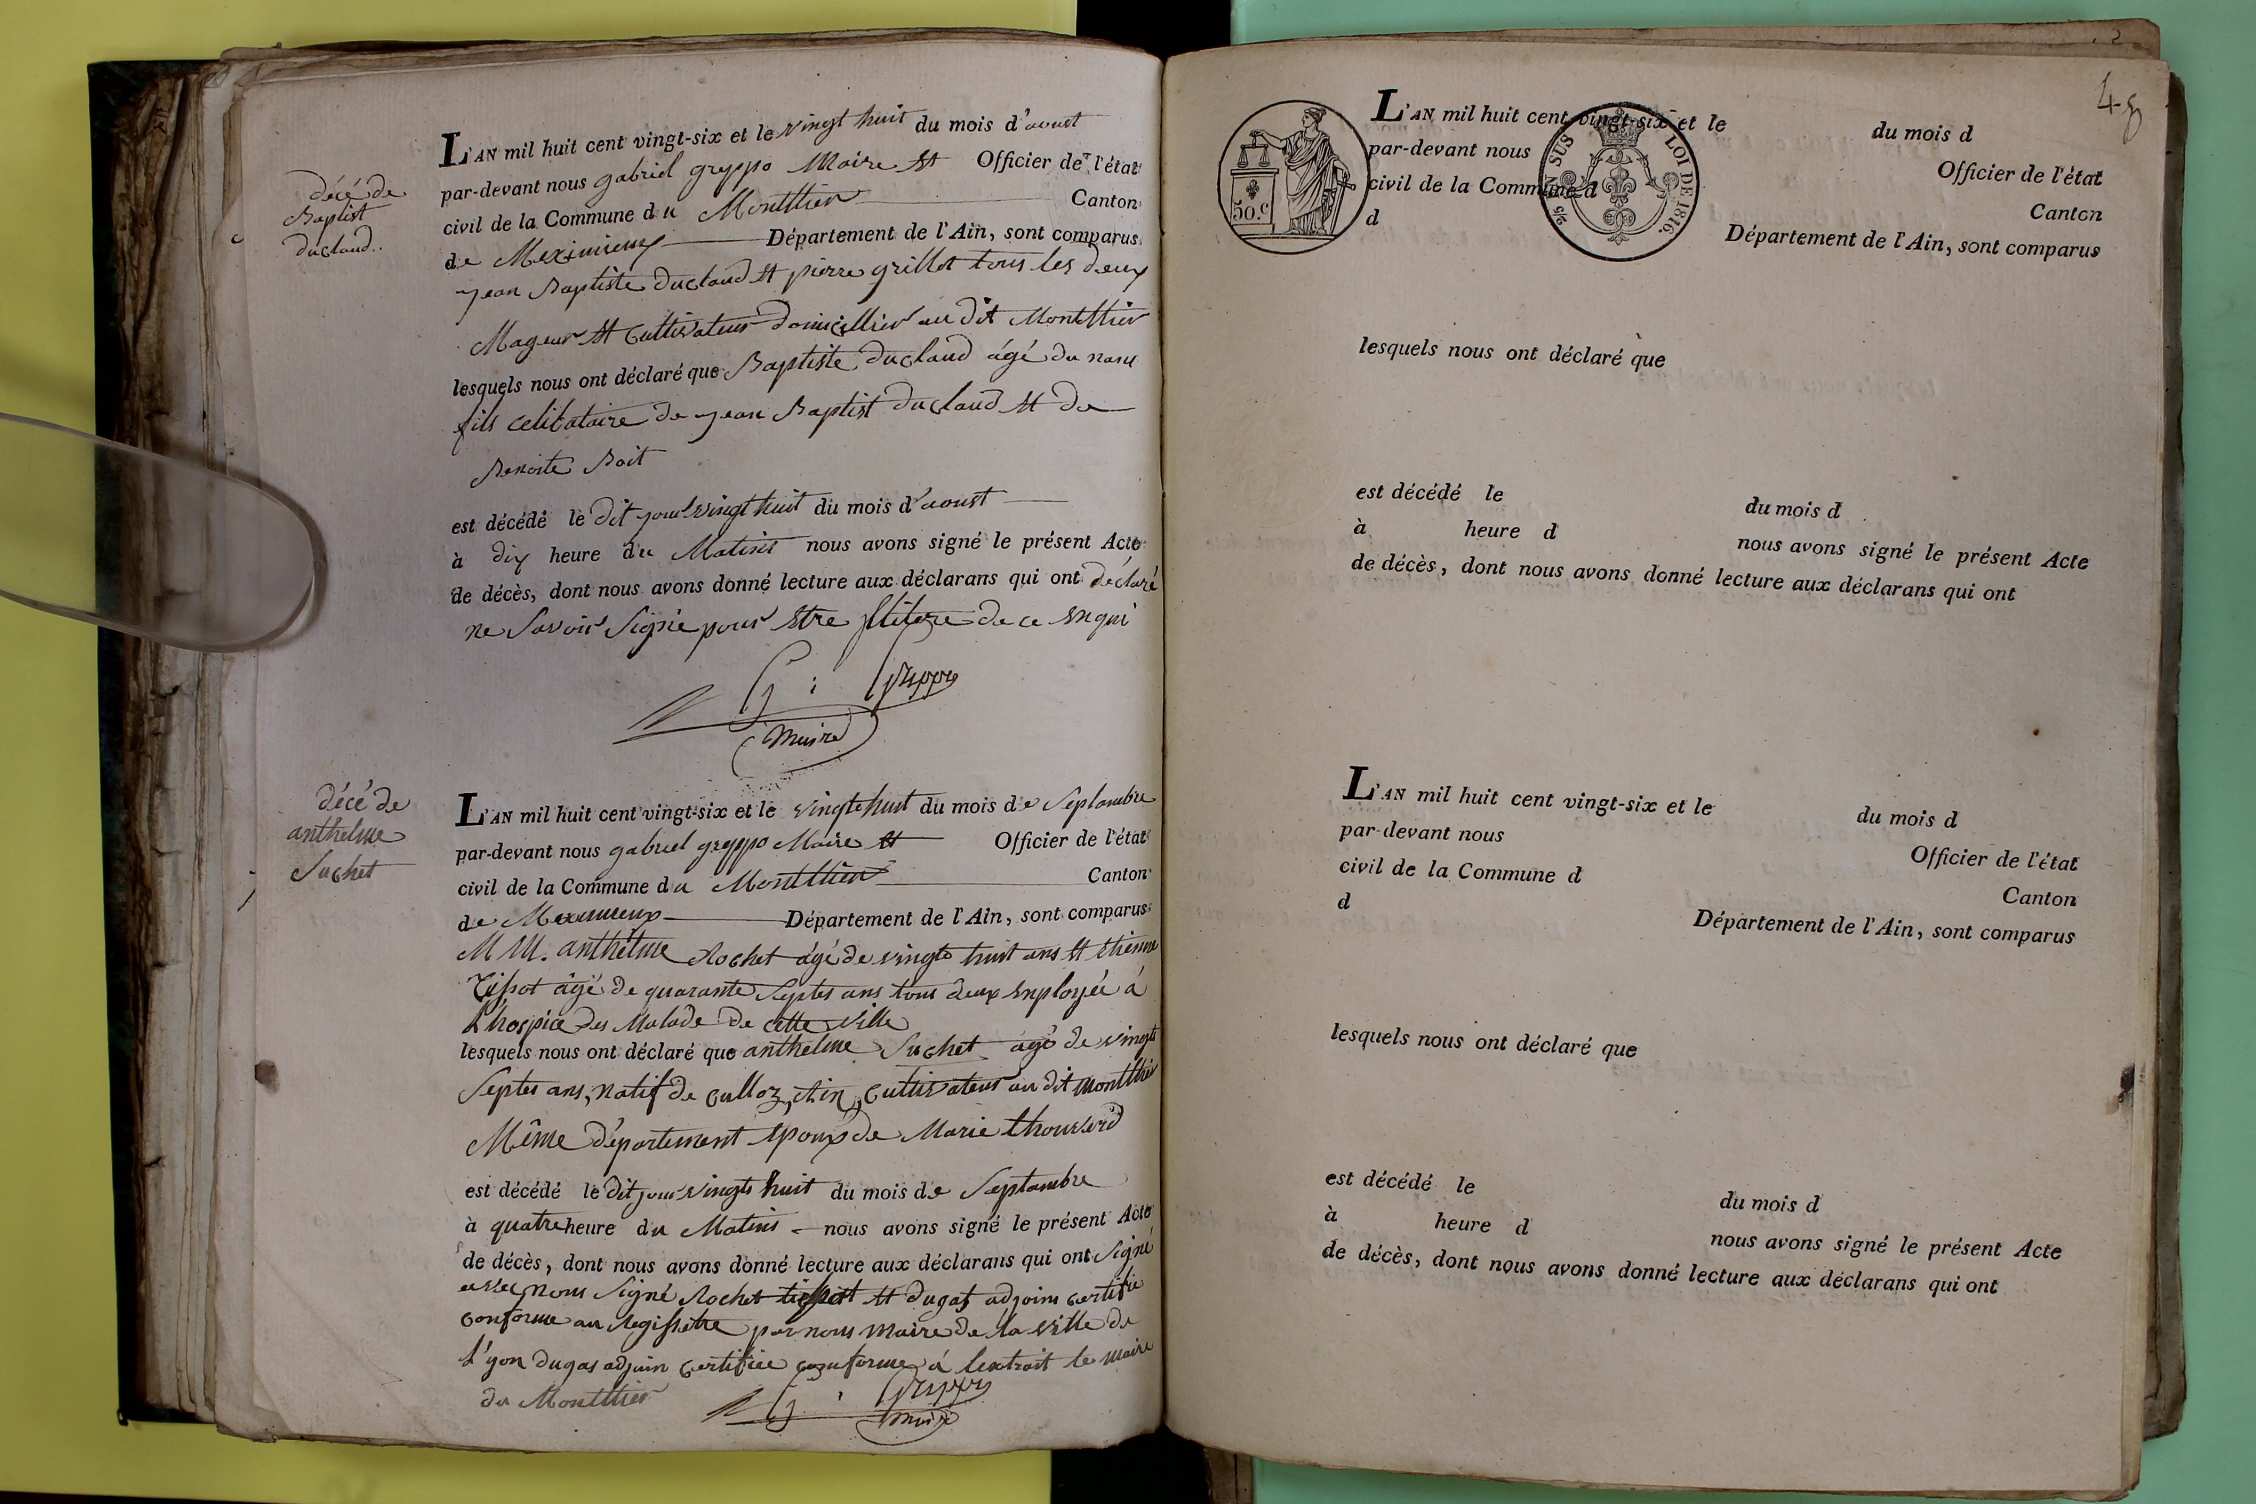 décé de
Baptist
duclaud..
L'AN mil huit cent vingt-six et le vingt huit du mois d'aoust
par-devant nous gabriel greppo Maire et Officier de l'état
civil de la Commune du Montthier Canton
de Meximieux Département de l'Ain, sont comparus
jean Baptiste duclaud et pierre grillet tous les deux
Mageur et Cultivateur domicillier au dit Montthier
lesquels nous ont déclaré que Baptiste duclaud âgé du
fils celibataire de jean Baptist duclaud et de
Benoite Boit
est décédé le dit jour vingt huit du mois d'aoust
à dix heure du Matins nous avons signé le présent Acte
de décès, dont nous avons donné lecture aux déclarans qui ont déclaré
ne Savoir Signé pour etre de ce enqui
G : Greppo
Maire
décé de
anthelme
Suchet
L'AN mil huit cent vingt-six et le vingt huit du mois de Septambre
par-devant nous gabriel greppo Maire et Officier de l'état
civil de la Commune du Montthier Canton
de Meximieux Département de l'Ain, sont comparus
M M. anthelme Rochet âgé de vingt huit ans et etienne
Tissot âgé de quarante Septes ans tous deux employée á
L'hospice des Malade de cette ville
lesquels nous ont déclaré que anthelme Suchet agé de vingt
Septes ans, natif de Culloz, Ain, Cultivateur au dit Montthier
Même département epoux de Marie thouverd
est décédé le dit jour vingt huit du mois de Septambre
à quatre heure du Matins nous avons signé le présent Acte
de décès, dont nous avons donné lecture aux déclarans qui ont Signé
avec nous Signé Rochet tissot et dugas adjoins certifié
conforme au Regissetre par nous maire de la ville de
L'yon dugas adjoin certifiée conforme á lextrait le maire
du Montthier
G : Greppo
maire
48
L'AN mil huit cent vingt-six et le du mois d
par-devant nous Officier de l'état
civil de la Commune d Canton
d Département de l'Ain, sont comparus
50.c
EN SUS
LOI DE 1816.
lesquels nous ont déclaré que
est décédé le du mois d
à heure d nous avons signé le présent Acte
de décès, dont nous avons donné lecture aux déclarans qui ont
L'AN mil huit cent vingt-six et le du mois d
par-devant nous Officier de l'état
civil de la Commune d Canton
d Département de l'Ain, sont comparus
lesquels nous ont déclaré que
est décédé le du mois d
à heure d nous avons signé le présent Acte
de décès, dont nous avons donné lecture aux déclarans qui ont